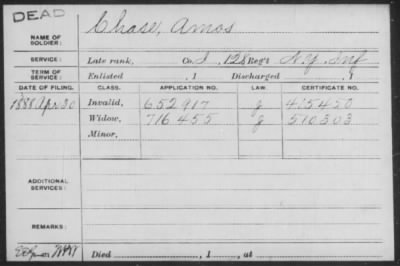 DEAD
NAME OF SOLDIER: Chase, Amos
SERVICE: Late rank, Co. I, 128 Reg't N.Y. Inf
TERM OF SERVICE: Enlisted , 1 Discharged , 1
DATE OF FILING. CLASS. APPLICATION NO. LAW. CERTIFICATE NO.
1888 Apr 30 Invalid, 652 917 J 415420
Widow, 716 455 J 510303
Minor,
ADDITIONAL SERVICES:
REMARKS:
Died , 1 , at